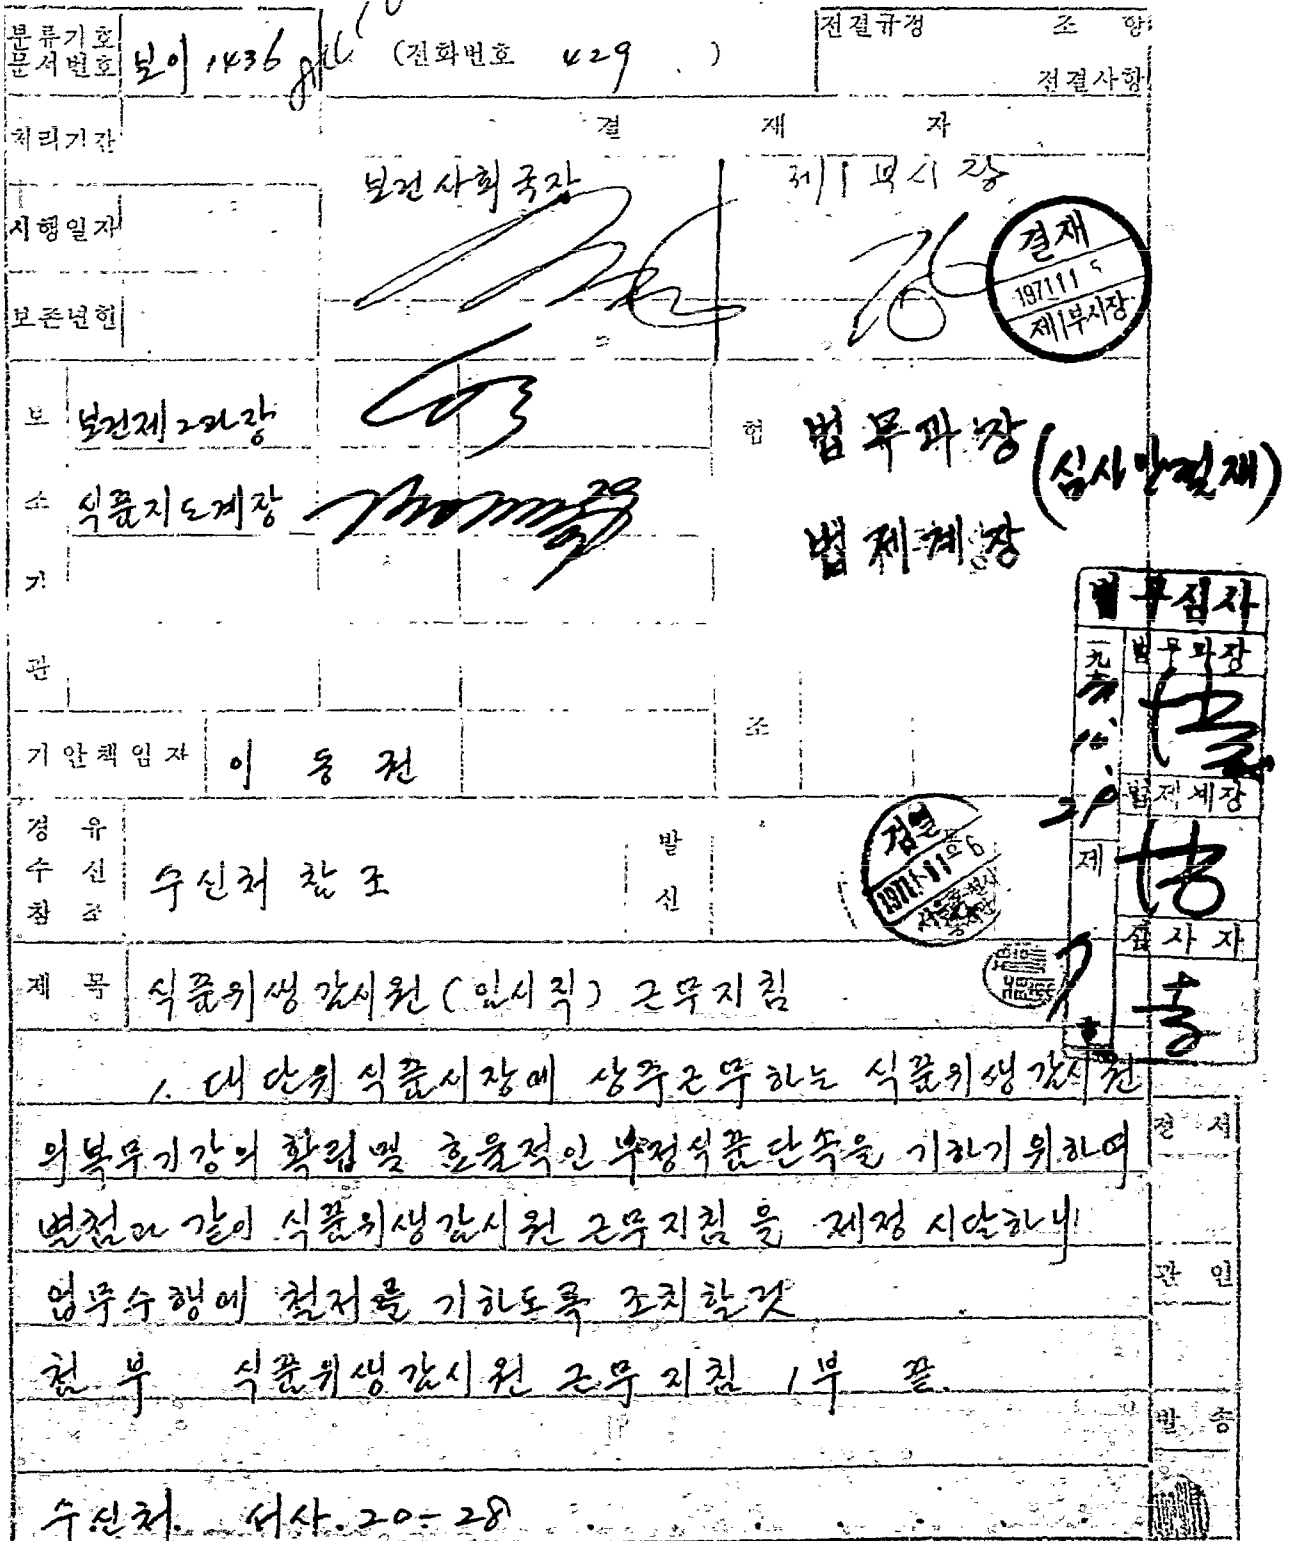 분류기호 문서번호 보이 1436 (전화번호 429 ) 전결규정 조 항
전결사항
처리기간 결 재 자
보건사회국장 제1부시장
시행일자
결재
1971 11 5
제1부시장
보존년한
보 보건제2과장 협 법무과장 (심사만결재)
소 식품지도계장
법제계장
기
법무심사
관
법무과장
조
기안책임자 이 동 권
법제계장
경유 수신 참조 수신처 참조 발신
검열
1971. 11. 6
제 7 호
심사자
제 목 식품위생감시원(임시직) 근무지침
1. 대단위 식품시장에 상주근무하는 식품위생감시원
의 복무기강의 확립 및 효율적인 부정식품단속을 기하기 위하여
별첨과 같이 식품위생감시원 근무지침을 제정 시달하니
업무수행에 철저를 기하도록 조치할 것
첨 부 식품위생감시원 근무지침 1부 끝.
관 인
발 송
수신처. 서사. 20-28